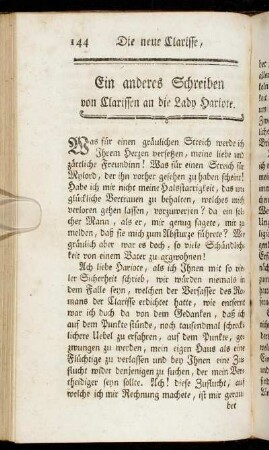 144 Die neue Clarisse,
Ein anderes Schreiben
von Clarissen an die Lady Hariote.
Was für einen gräulichen Streich werde ich
Ihrem Herzen versetzen, meine liebe und
zärtliche Freundinn! Was für einen Streich für
Mylord, der ihn vorher gesehen zu haben scheint!
Habe ich mir nicht meine Halsstarrigkeit, das un-
glückliche Vertrauen zu behalten, welches mich
verloren gehen lassen, vorzuwerfen? da ein sol-
cher Mann, als er, mir genug sagete, mir zu
melden, daß sie mich zum Absturze führete? Wie
gräulich aber war es doch, so viele Schändlich-
keit von einem Vater zu argwohnen!
Ach liebe Hariote, als ich Ihnen mit so vie-
ler Sicherheit schrieb, wir würden niemals in
dem Falle seyn, welchen der Verfasser des Ro-
mans der Clarisse erdichtet hatte, wie entfernt
war ich doch da von dem Gedanken, daß ich
auf dem Punkte stünde, noch tausendmal schreck-
lichere Uebel zu erfahren, auf dem Punkte, ge-
zwungen zu werden, mein eigen Haus als eine
Flüchtige zu verlassen und bey Ihnen eine Zu-
flucht wider denjenigen zu suchen, der mein Ver-
theidiger seyn sollte. Ach! diese Zuflucht, auf
welche ich mir Rechnung machete, ist mir gerau-
bet